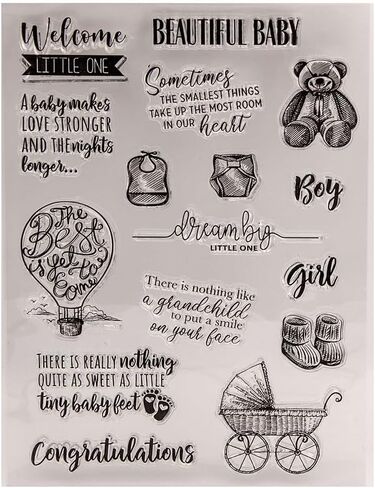 Welcome
LITTLE ONE
BEAUTIFUL BABY
Sometimes
THE SMALLEST THINGS
TAKE UP THE MOST ROOM
IN OUR heart
A baby makes
LOVE STRONGER
AND THE nights
longer...
Boy
The
Best
is yet to
Come
dream big
LITTLE ONE
Girl
There is nothing like
a grandchild
to put a smile
on your face
THERE IS REALLY nothing
QUITE AS SWEET AS LITTLE
tiny baby feet
Congratulations